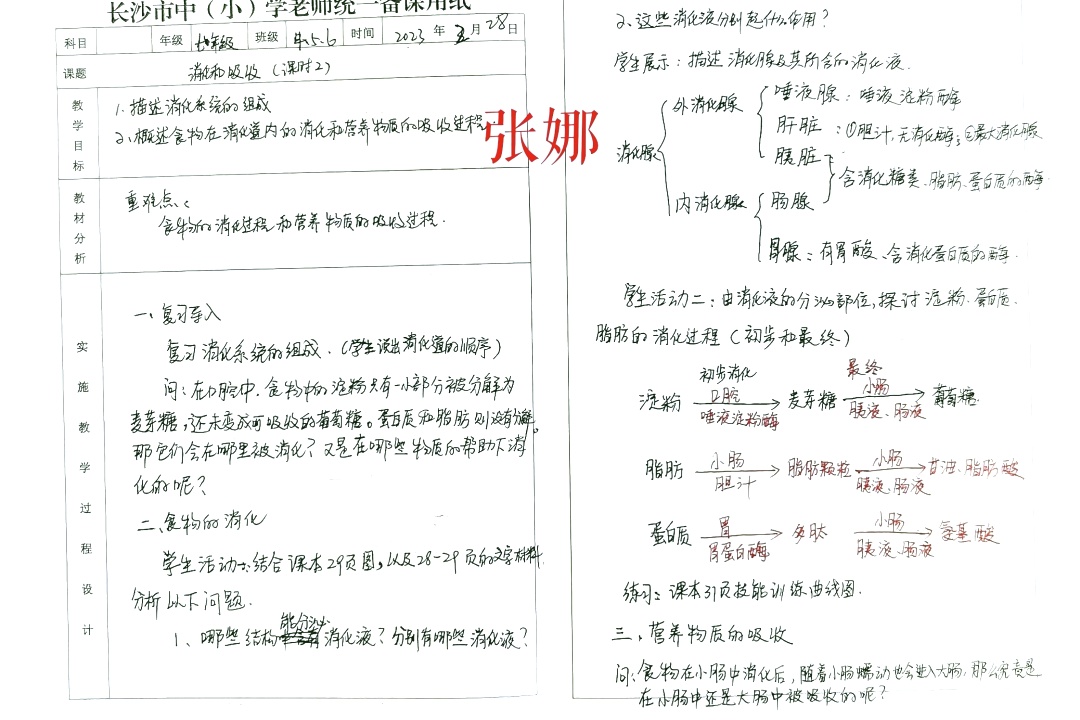 长沙市中（小）学老师统一备课用纸
科目 年级 七年级 班级 4.5.6 时间 2023 年 五 月 28 日
课题 消化和吸收（课时2）
教学目标
1.描述消化系统的组成
2.概述食物在消化道内的消化和营养物质的吸收过程.
张娜
教材分析
重难点:
食物的消化过程和营养物质的吸收过程.
实施教学过程设计
一、复习导入
复习消化系统的组成.（学生说出消化道的顺序）
问:在口腔中,食物中的淀粉只有一小部分被分解为
麦芽糖,还未变成可吸收的葡萄糖。蛋白质和脂肪则没有分解。
那它们会在哪里被消化？又是在哪些物质的帮助下消
化的呢？
二、食物的消化
学生活动一:结合课本29页图,以及28-29页的文字材料
分析以下问题.
能分泌
1、哪些结构消化液？分别有哪些消化液？
2、这些消化液分别起什么作用？
学生展示:描述消化腺及其所含的消化液.
消化腺
外消化腺
唾液腺:唾液淀粉酶
肝脏:①胆汁,无消化酶;②最大消化腺
胰脏
含消化糖类、脂肪、蛋白质的酶
内消化腺
肠腺
胃腺:有胃酸、含消化蛋白质的酶.
学生活动二:由消化液的分泌部位,探讨淀粉.蛋白质.
脂肪的消化过程（初步和最终）
初步消化 最终
淀粉 口腔 唾液淀粉酶 麦芽糖 小肠 胰液、肠液 葡萄糖
脂肪 小肠 胆汁 脂肪颗粒 小肠 胰液、肠液 甘油、脂肪酸
蛋白质 胃 胃蛋白酶 多肽 小肠 胰液、肠液 氨基酸
练习:课本31页技能训练曲线图.
三、营养物质的吸收
问:食物在小肠中消化后,随着小肠蠕动也会进入大肠,那么究竟是
在小肠中还是大肠中被吸收的呢？